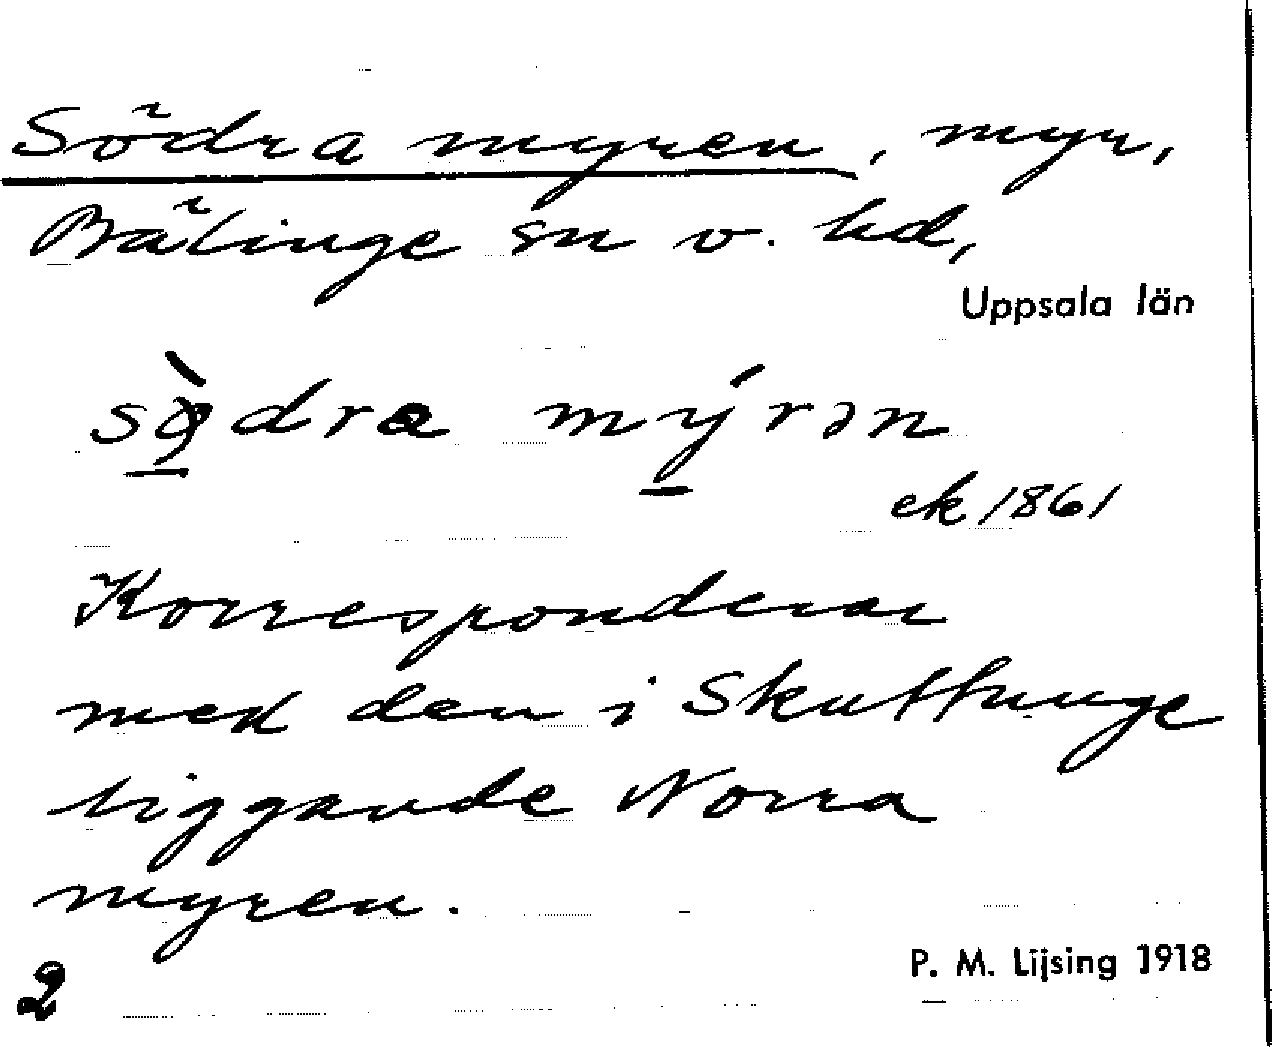 Södra myren, myr,
Bälinge sn o. hd,
Uppsala län
mýrən
ek 1861
Korresponderar
med den i Skuttunge
liggande Norra
myren.
P. M. Lijsing 1918
2